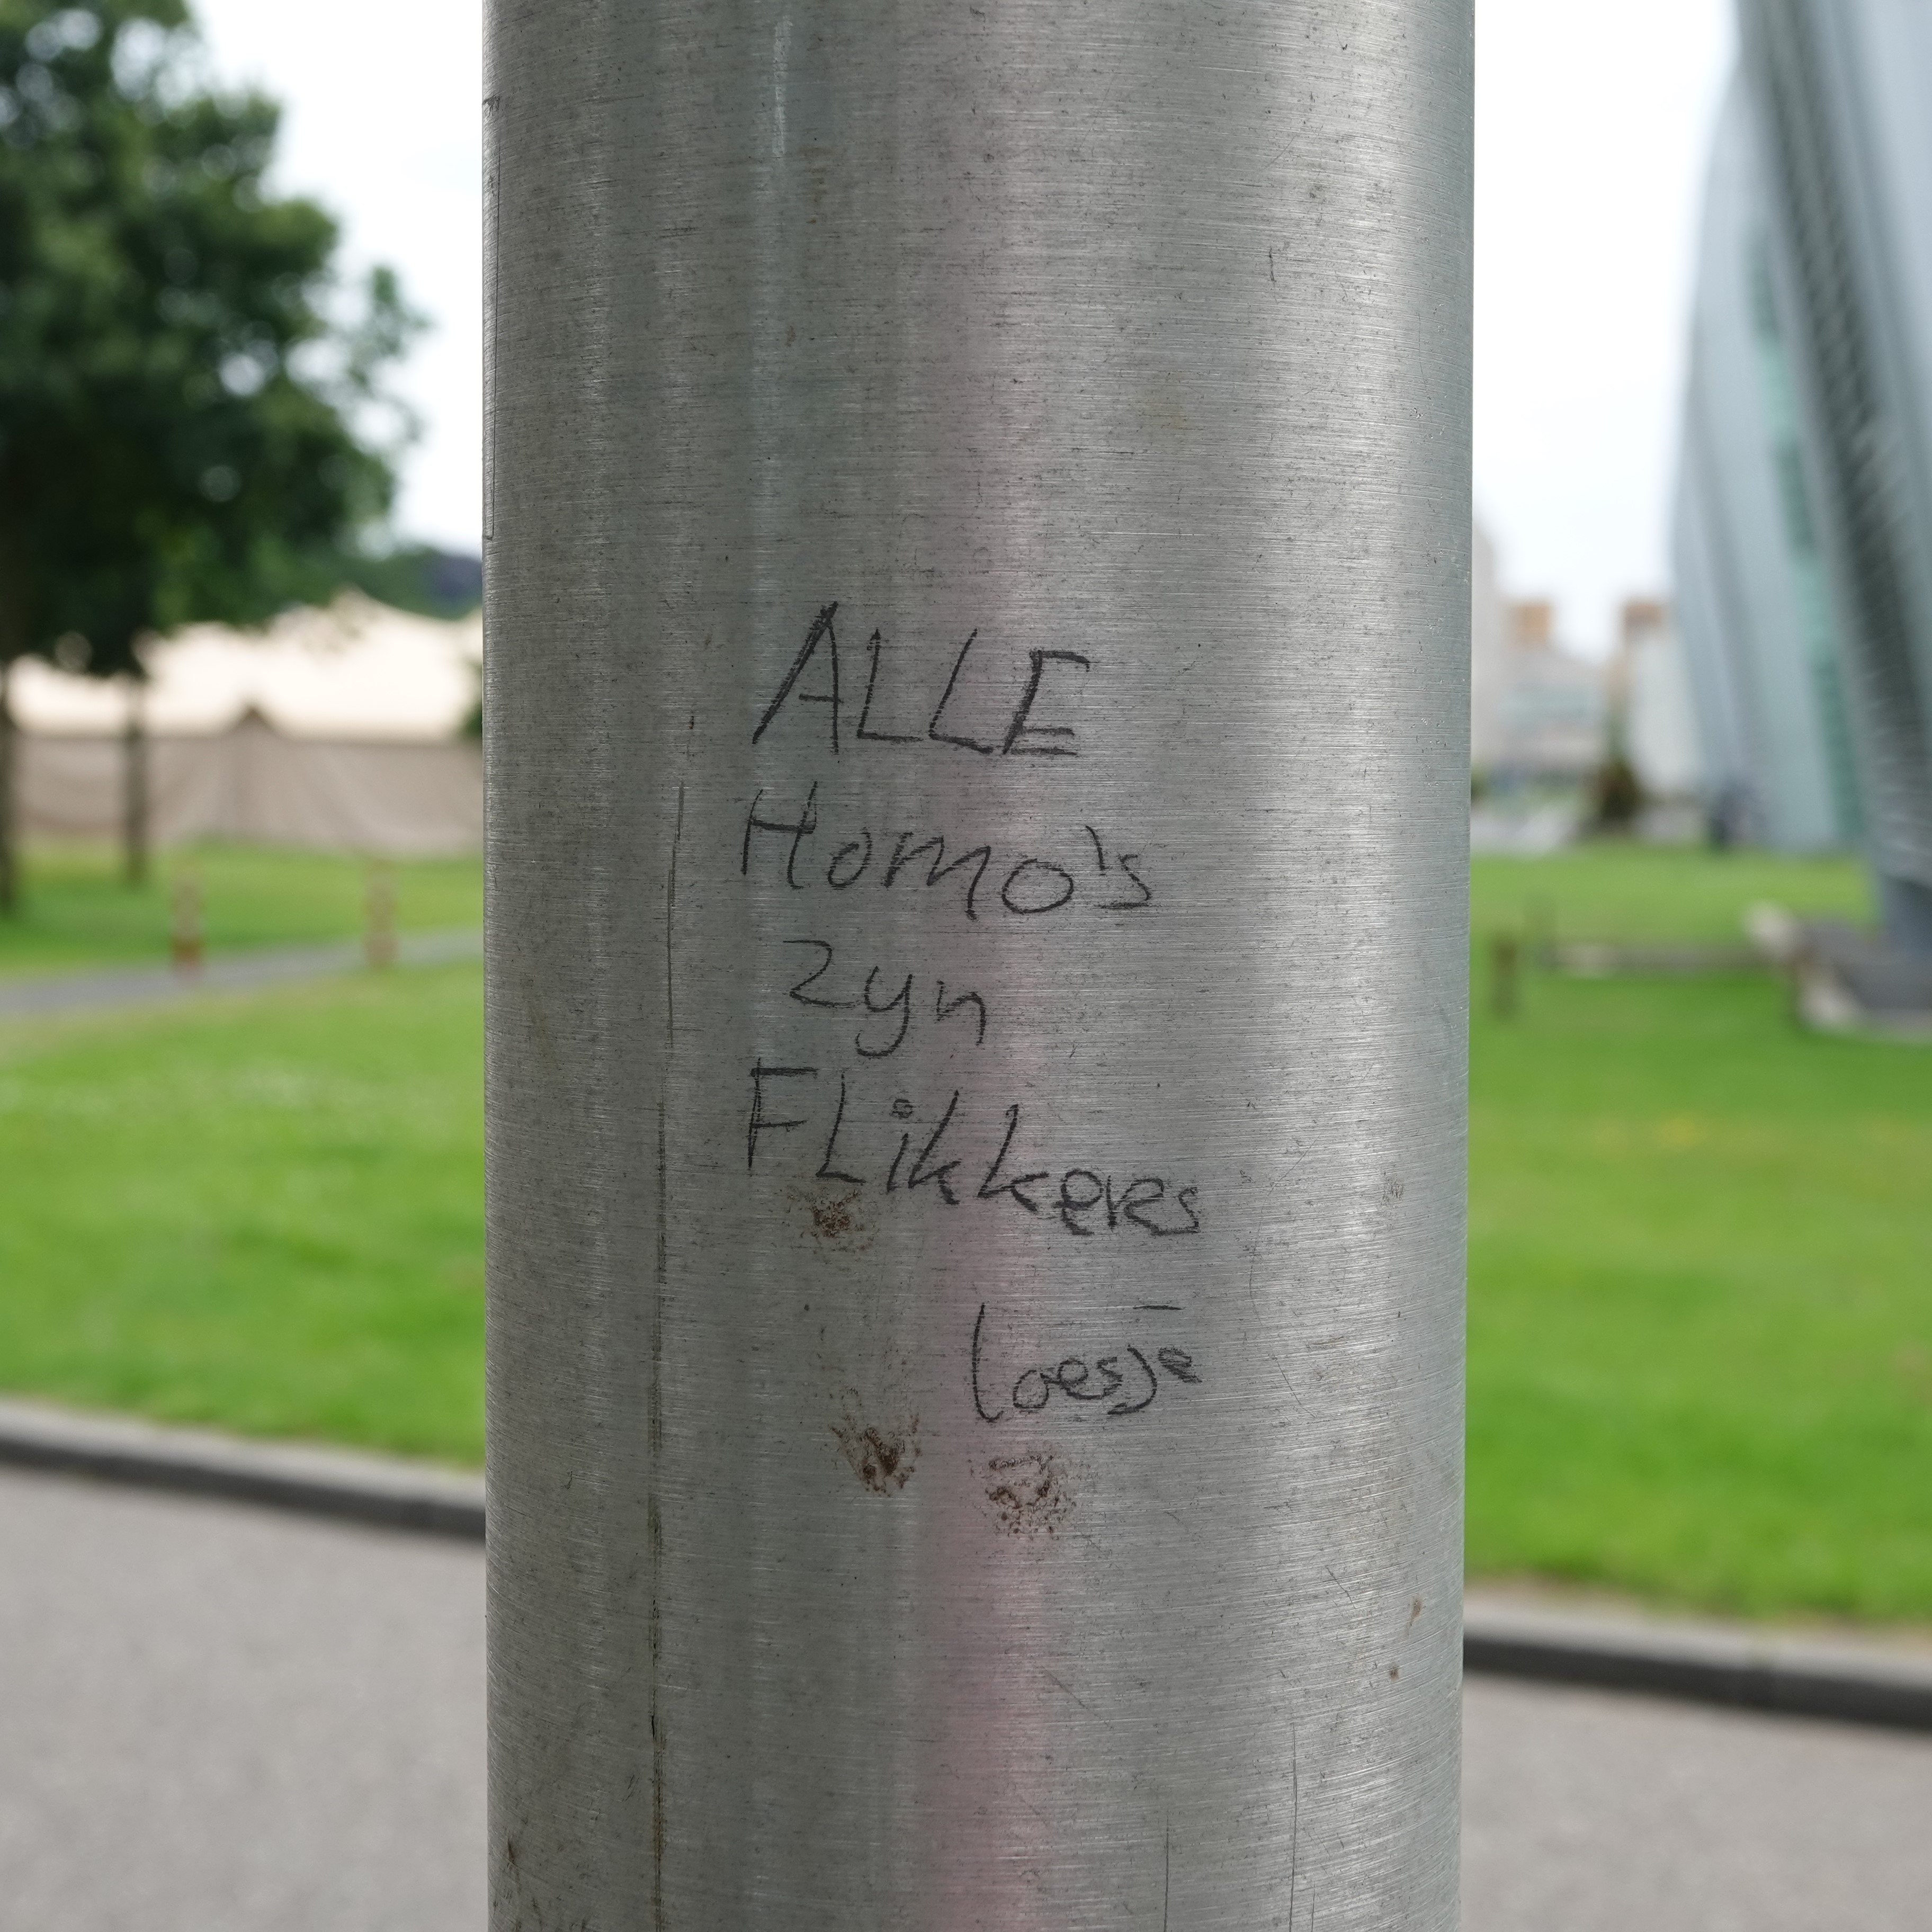 ALLE
Homo's
zyn
FLikkers
loesje